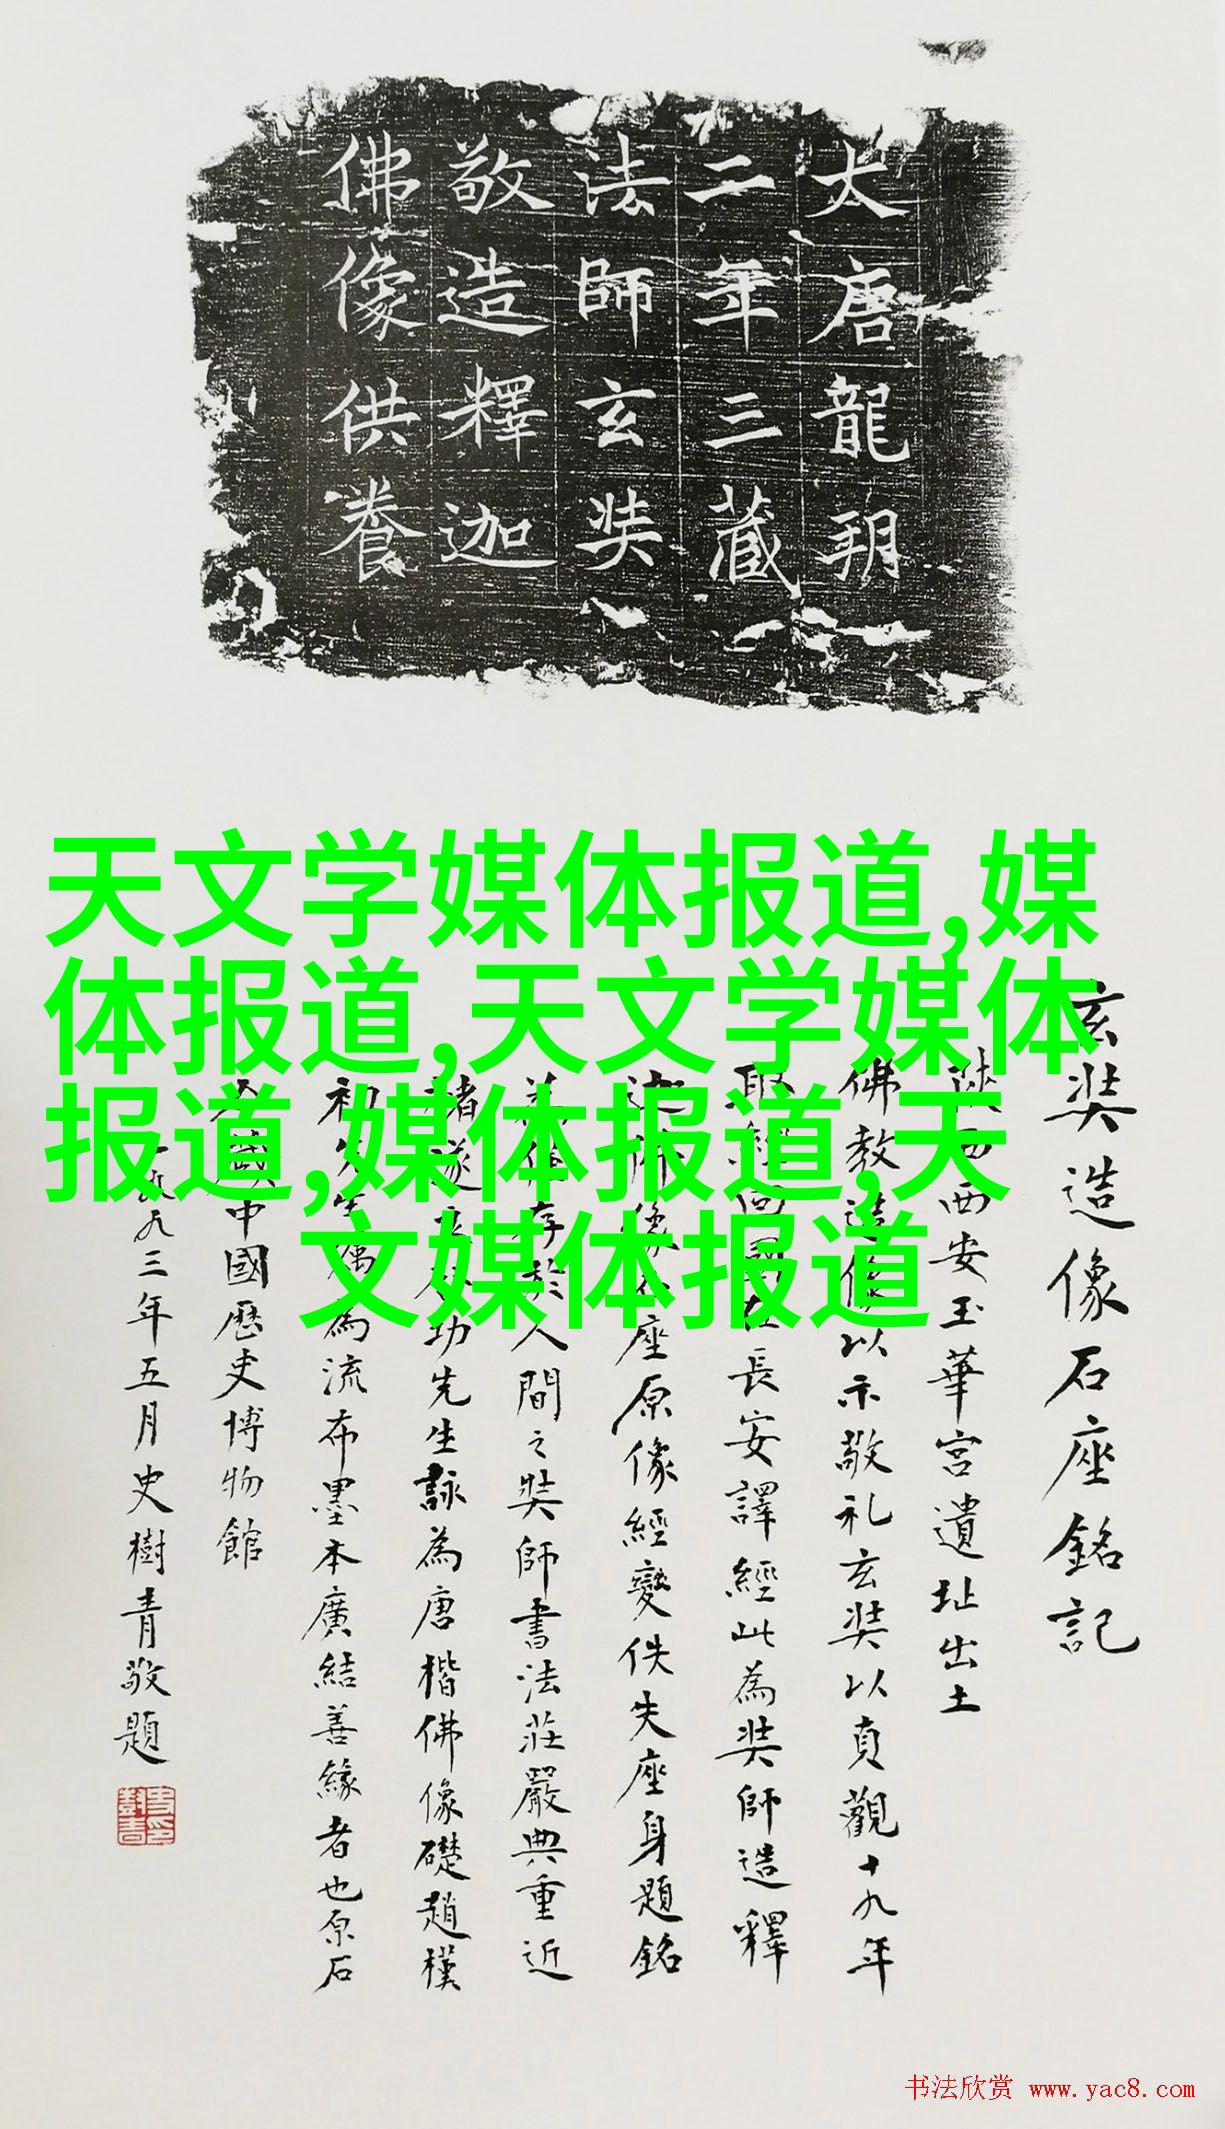 大唐龍朔
二年三藏
法師玄奘
敬造釋迦
佛像供養
天文学媒体报道,媒
体报道,天文学媒体
报道,媒体报道,天
文媒体报道
玄奘造像石座銘記
陝西西安玉華宮遺址出土
佛教造像以示敬礼玄奘以貞觀十九年
取經回國在長安譯經此為奘師造釋
迦佛像之座原像經變佚失座身題銘
存於人間之奘師書法莊嚴典重近
褚遂良啟功先生詠為唐楷佛像礎趙樸
初先生屬為流布墨本廣結善緣者也原石
今藏中國歷史博物館
一九九三年五月史樹青敬題
史樹青印
书法欣赏 www.yac8.com